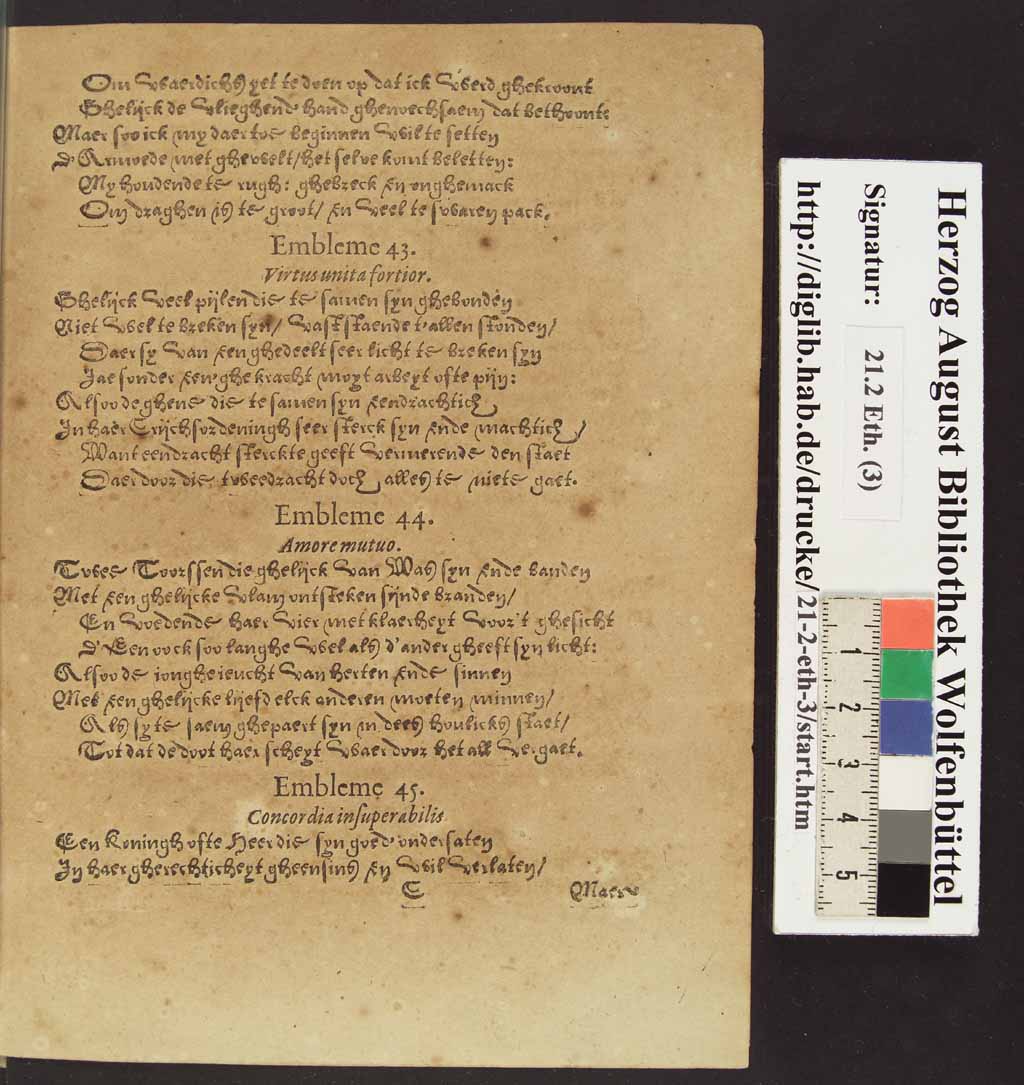 Om waerdichs yet te doen op dat ick werd ghekroont
Ghelijck de vlieghend' hand ghenoechsaem dat bethoont:
Maer soo ick my daer toe beginnen wil te setten
D'Armoede met ghewelt/ het selve komt beletten:
My houdende te rugh: ghebreck en onghemack
Om draghen is te groot/ en veel te swaren pack.
Embleme 43.
Virtus unita fortior.
Ghelijck veel pijlen die te samen syn ghebonden
Niet wel te breken syn/ vast staende t'allen stonden/
Daer sy van een ghedeelt seer licht te breken syn
Jae sonder eenighe kracht moyt arbeyt ofte pijn:
Alsoo de ghene die te samen syn eendrachtich
In haer Crijchsordeningh seer sterck syn ende machtich/
Want eendracht sterckte geeft vermerende den staet
Daer door die tweedracht doch alles te niete gaet.
Embleme 44.
Amore mutuo.
Twee Toorssen die ghelijck van Was syn ende banden
Met een ghelijcke vlam ontsteken sijnde branden/
En voedende haer vier met klaerheyt voor 't ghesicht
D'Een oock soo langhe wel als d'ander gheeft syn licht:
Alsoo de ionghe ieucht van herten ende sinnen
Met een ghelijcke liefd elck anderen moeten minnen/
Als sy te saem ghepaert syn in dees houlicks staet/
Tot dat de doot haer scheyt waer door het all vergaet.
Embleme 45.
Concordia insuperabilis
Een Koningh ofte Heer die syn goed' ondersaten
In haer gherechticheyt gheensins en wil verlaten/
C Maer
Herzog August Bibliothek Wolfenbüttel
Signatur: 21.2 Eth. (3)
http://diglib.hab.de/drucke/21-2-eth-3/start.htm
1 2 3 4 5